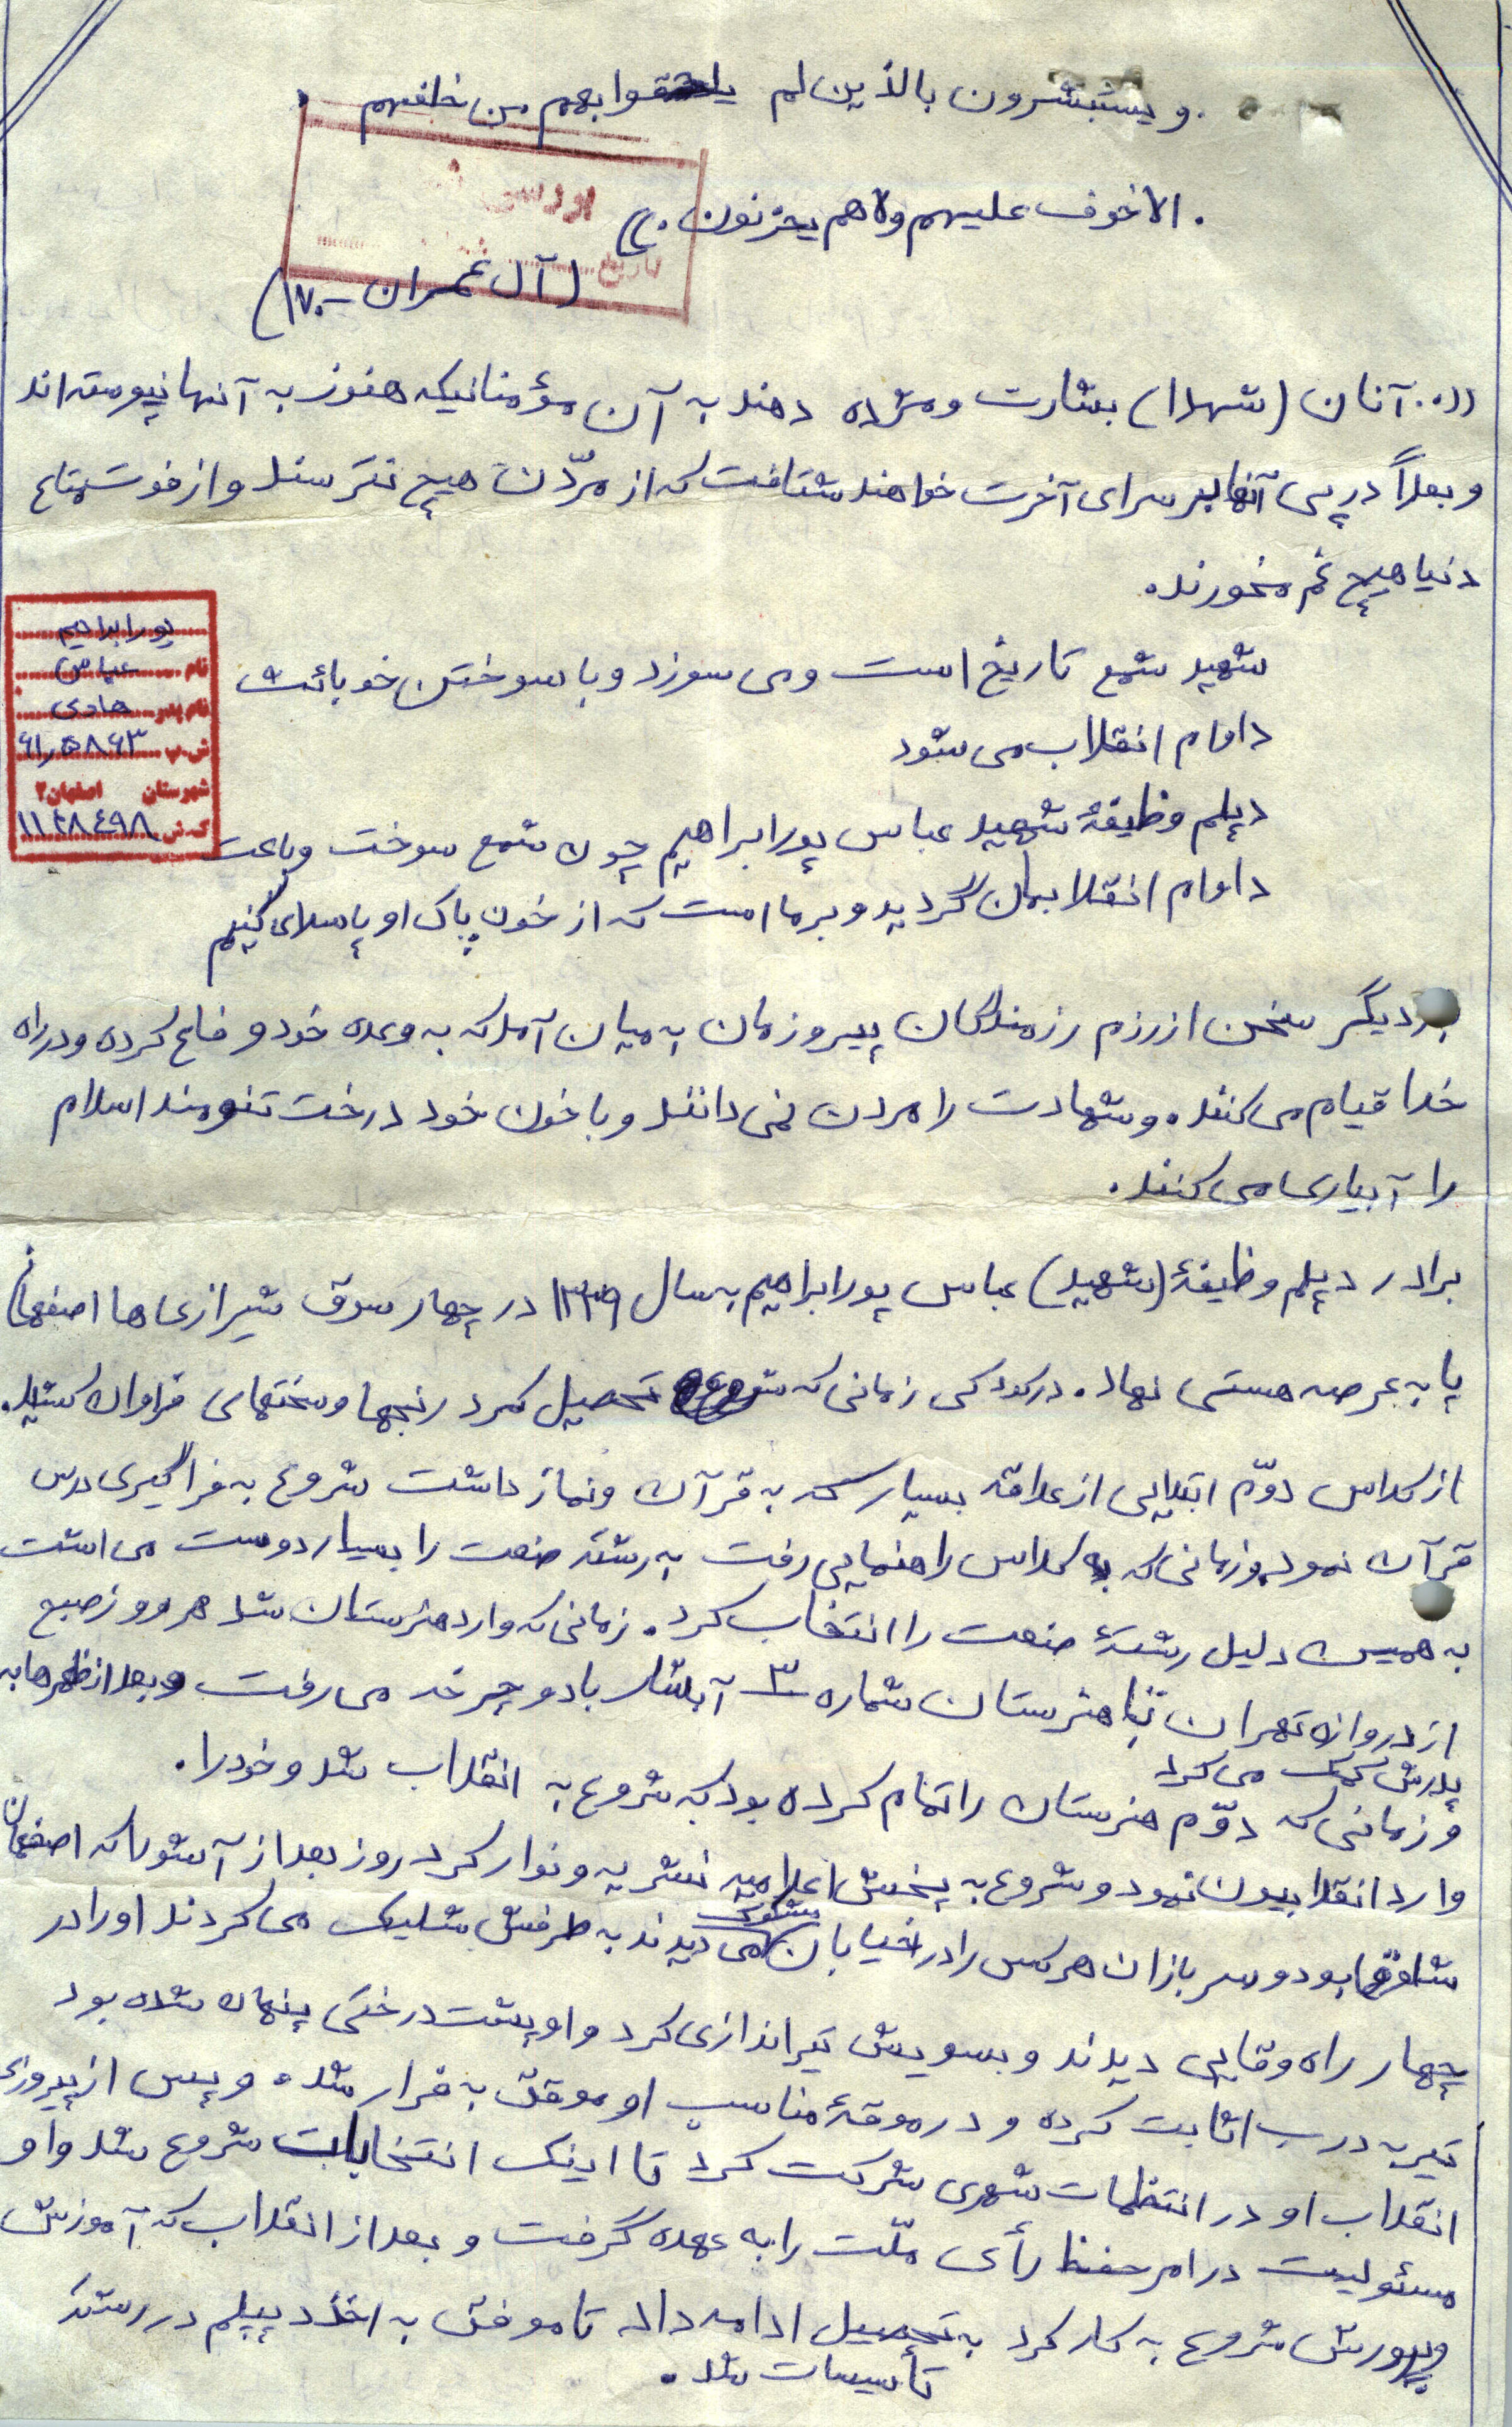 و يستبشرون بالذين لم يلحقوا بهم من خلفهم
الا خوف عليهم ولا هم يحزنون .))
(آل عمران - ۱۷۰)
((..آنان (شهدا) بشارت و مژده دهند به آن مؤمنانیکه هنوز به آنها نپیوسته اند
و بعداً در پی آنها بسرای آخرت خواهند شتافت که از مردن هیچ نترسند و از فوت متاع
دنیا هیچ غم نخورند.
پورابراهیم
نام عباس
نام پدر هادی
ش.پ ۶۱ر۵۸۶۳
شهرستان اصفهان ۲
ک.ش ۱۱۲۸۴۹۸
شهید شمع تاریخ است و می سوزد و با سوختن خو بائث
داوام انقلاب می شود
دیپلم وظیفۀ شهید عباس پورابراهیم چون شمع سوخت و باعث
داوام انقلابمان گردید و برما است که از خون پاک او پاسداری کنیم
بار دیگر سخن از رزم رزمندگان پیروزمان به میان آمد که به وعده خود وفاع کرده و در راه
خدا قیام می کنند. و شهادت را مردن نمی دانند و با خون خود درخت تنومند اسلام
را آبیاری می کنند.
برادر دیپلم وظیفۀ (شهید) عباس پورابراهیم به سال ۱۳۳۹ در چهار سوق شیرازی ها اصفهان
پا به عرصه هستی نهاد. در کودکی زمانی که شروع تحصیل کرد رنجها و سختهای فراوان کشید.
از کلاس دوّم ابتدایی از علاقه بسیار که به قرآن و نماز داشت شروع به فراگیری درس
قرآن نمود وزمانی که به کلاس راهنمایی رفت به رشته صنعت را بسیار دوست می اشت
به همین دلیل رشتۀ صنعت را انتخاب کرد. زمانی که وارد هنرستان شد هر روز صبح
از دروازه تهران تا هنرستان شماره ۳ آبشار با دوچرخه می رفت و بعد از ظهرها به
پدرش کمک می کرد
و زمانی که دوّم هنرستان را تمام کرده بود که شروع به انقلاب شد و خود را.
وارد انقلابیون نمود و شروع به پخش اعلامیه نشریه و نوار کرد روز بعد از آشورا که اصفهان
شلوغ بود و سربازان هر کس را در خیابان مشکوک می دیدند به طرفش شلیک می کردند او را در
چهار راه وفایی دیدند و بسویش تیراندازی کرد و او پشت درختی پنهان شده بود
تیر به درب اثابت کرده و در موقۀ مناسب او موفق به فرار شد. و پس از پیروزی
انقلاب او در انتظامات شهری شرکت کرد تا اینک انتخابات شروع شد و او
مسئولیت در امر حفظ رأی ملّت را به عهده گرفت و بعد از انقلاب که آموزش
وپرورش شروع به کار کرد به تحصیل ادامه داد تا موفق به اخذ دیپلم در رشته
تأسیسات شد.